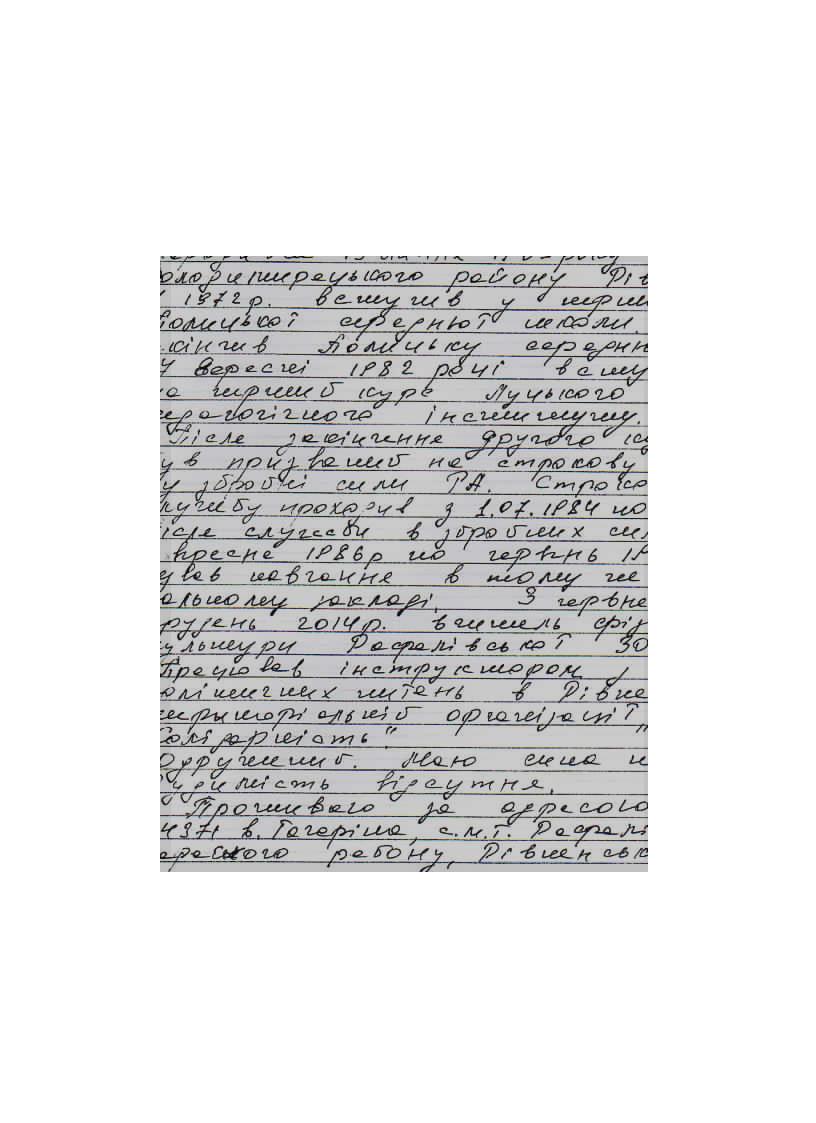 олодимирецького району Рів
1972р. вступив у перш
Полицької середньої школи.
кінчив Полицьку середн
У вересні 1982 році всту
на перший курс Луцького
педагогічного інституту.
Після закінчення другого ку
ув призваний на строкову
у збройні сили РА. Строко
лужбу проходив з 1.07.1984 по
ісле служби в збройних сил
вресне 1986р по червнь 19
ував навчання в тому же
альному закладі. З червне
рудень 2014р. вчитель фіз
ультури Рафалівської ЗО
Працював інструктором у
олітичних питань в Рівне
териториіальній організації „
Солідарність".
Одружений. Маю сина и
удимість відсутня.
Проживаю за адресою
4371 в. Гагаріна, с.м.т. Рафалі
ерецкого району, Рівненськ